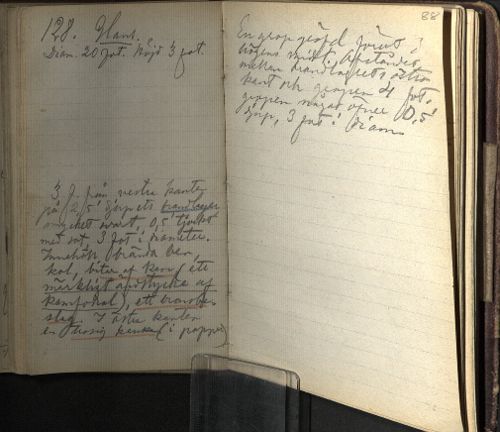 128. Hans.
Diam. 20 fot. Höjd 3 fot.
3 f. från vestra kanten
på 2,5' djup ets brandlager
mycket svart, 0,5 tjockt
med sot, 3 fot i diameter.
Innehöll brända ben,
kol, bitar af kam (ett
märkligt ändstycke af
kamfodral), ett brons be-
slag. I östra kanten
en (i papper)
88
En grop gräfd förut i
högens midt. Afståndet
mellan brandlagrets östra
kant och gropen 4 fot,
gropen något öfver 0,5'
djup, 3 fot i diam.